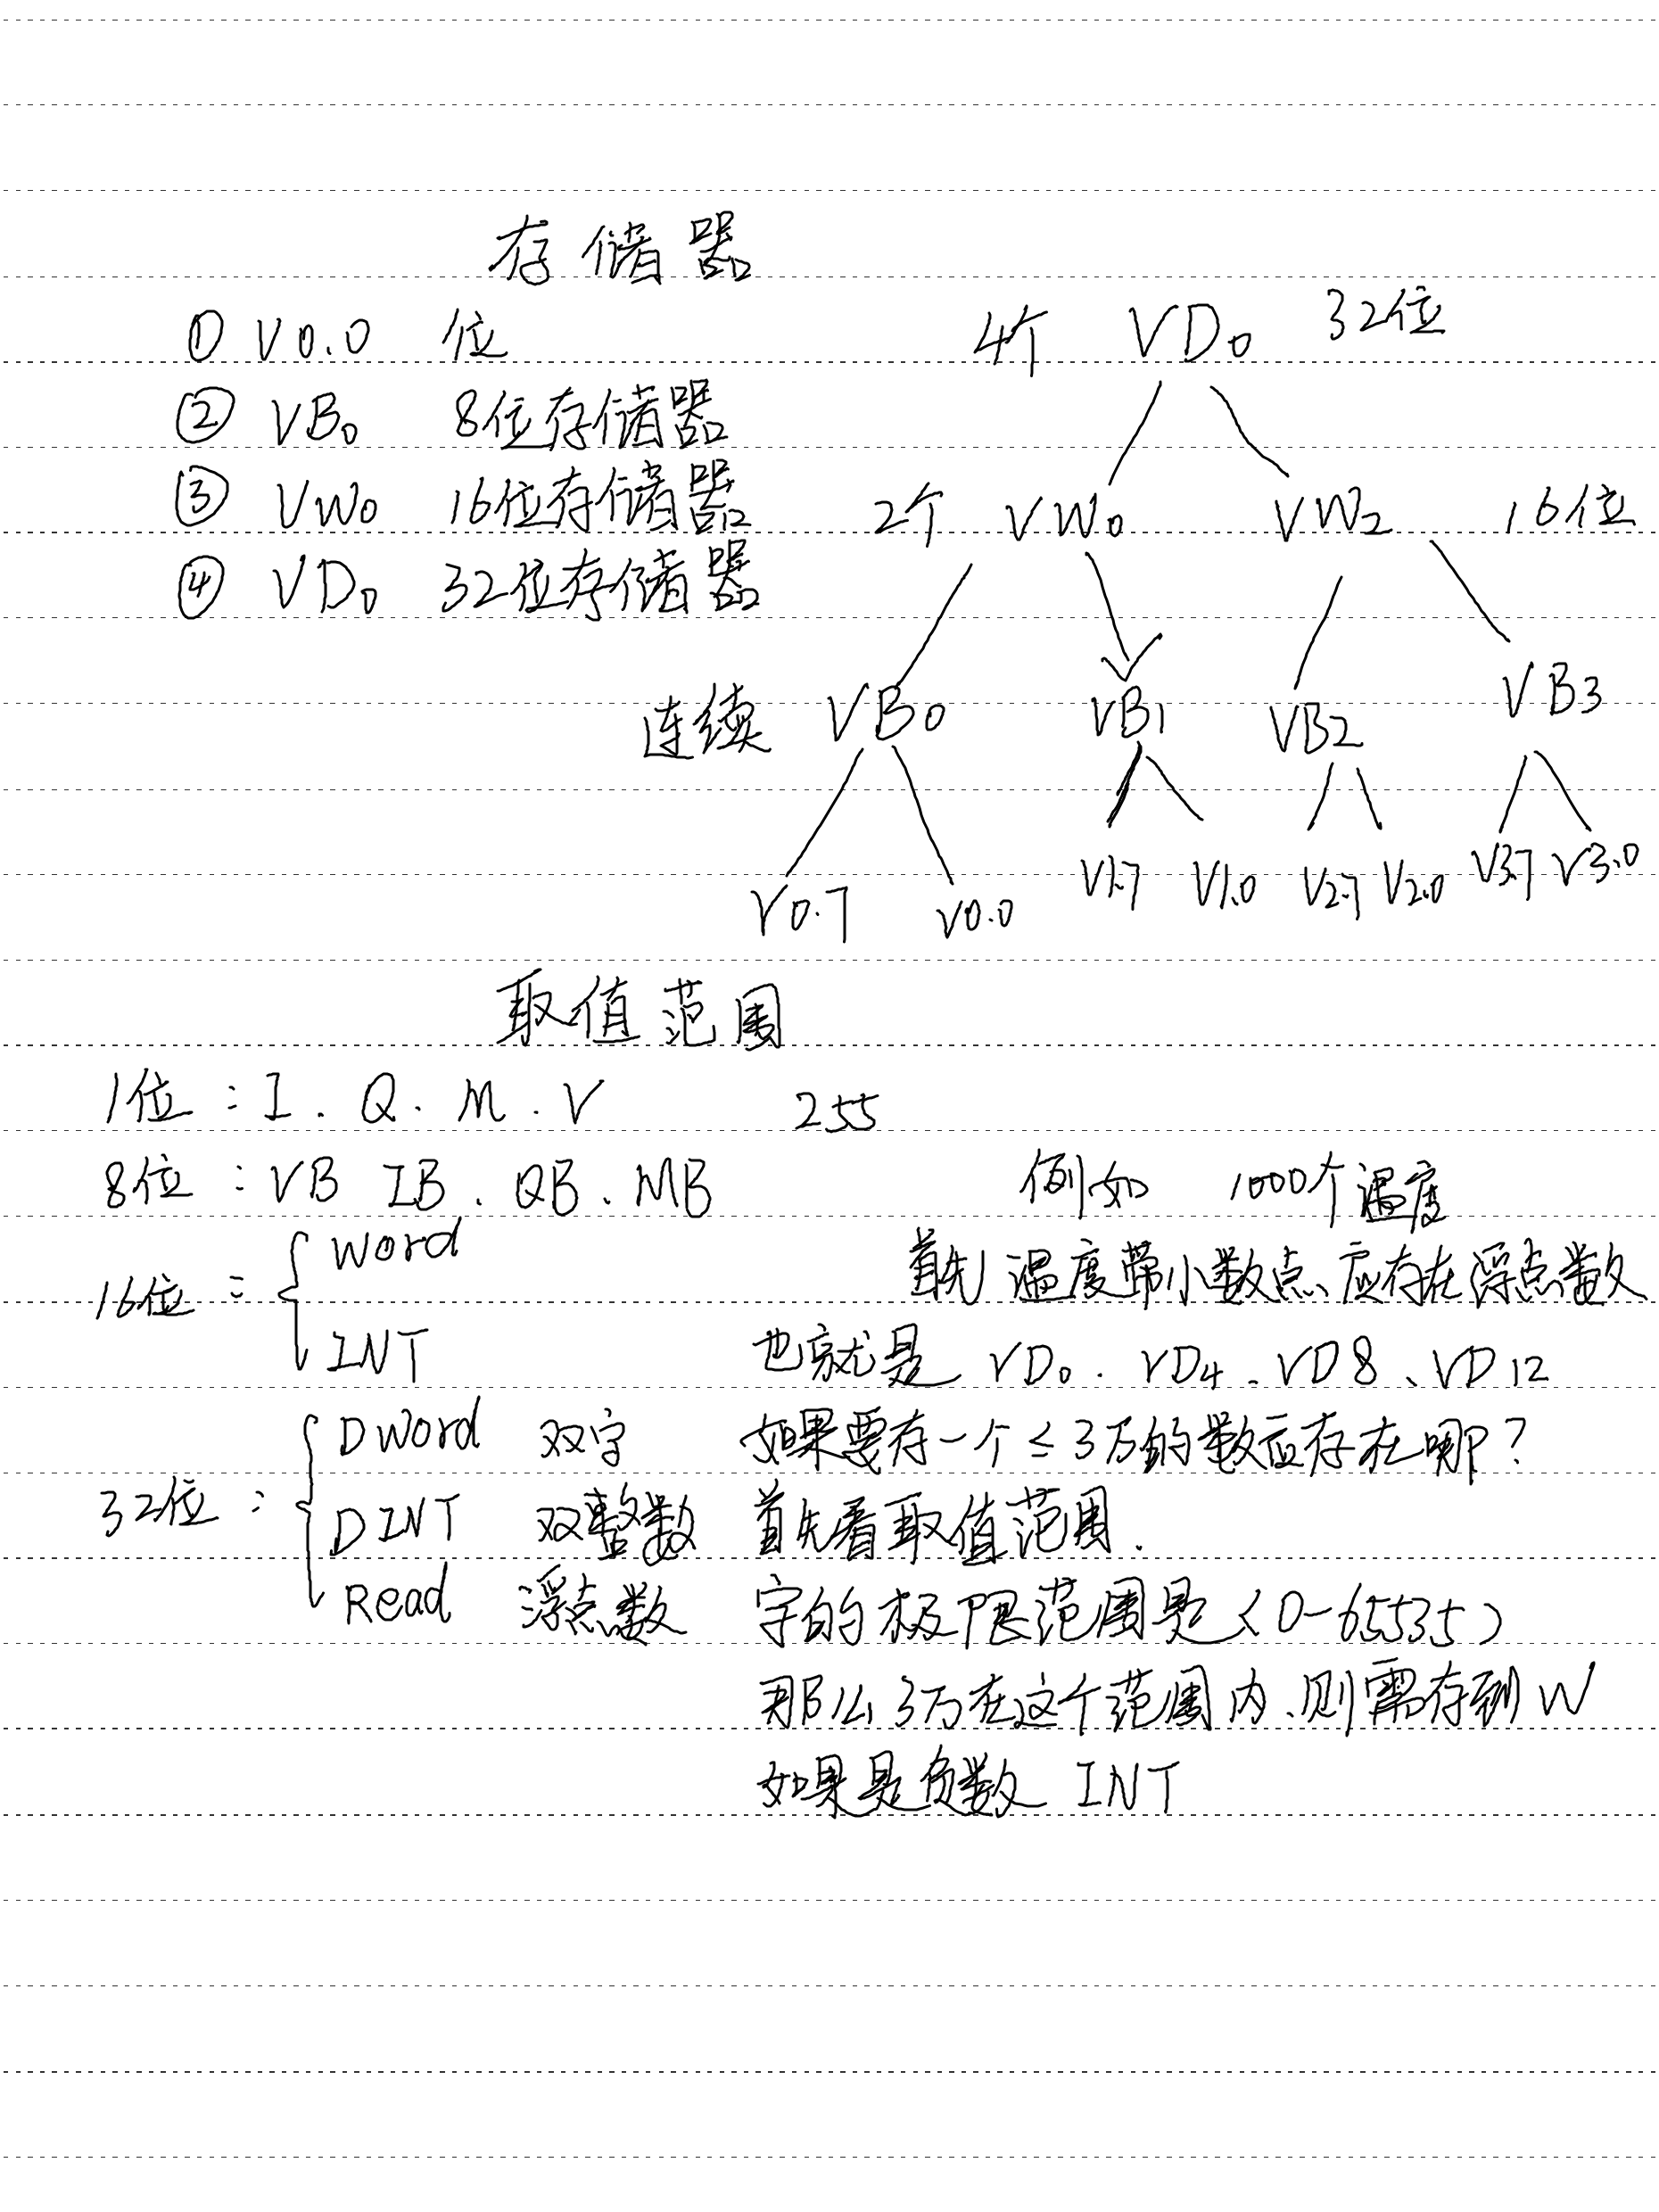 存储器
① V0.0 位
② VB0 8位存储器
③ VW0 16位存储器
④ VD0 32位存储器
4个 VD0 32位
2个 VW0 VW2 16位
连续 VB0 VB1 VB2 VB3
V0.7 V0.0 V1.7 V1.0 V2.7 V2.0 V3.7 V3.0
取值范围
1位：I. Q. M. V 255
8位：VB IB. QB. MB
16位：{ Word
INT
32位：{ DWord 双字
DINT 双整数
Read 浮点数
例如 1000个温度
首先 温度带小数点、应存在浮点数
也就是 VD0. VD4、VD8、VD12
如果要存一个≤3万的数应存在哪？
首先看取值范围.
字的极限范围是(0-65535)
那么3万在这个范围内、则需存到W
如果是负数 INT